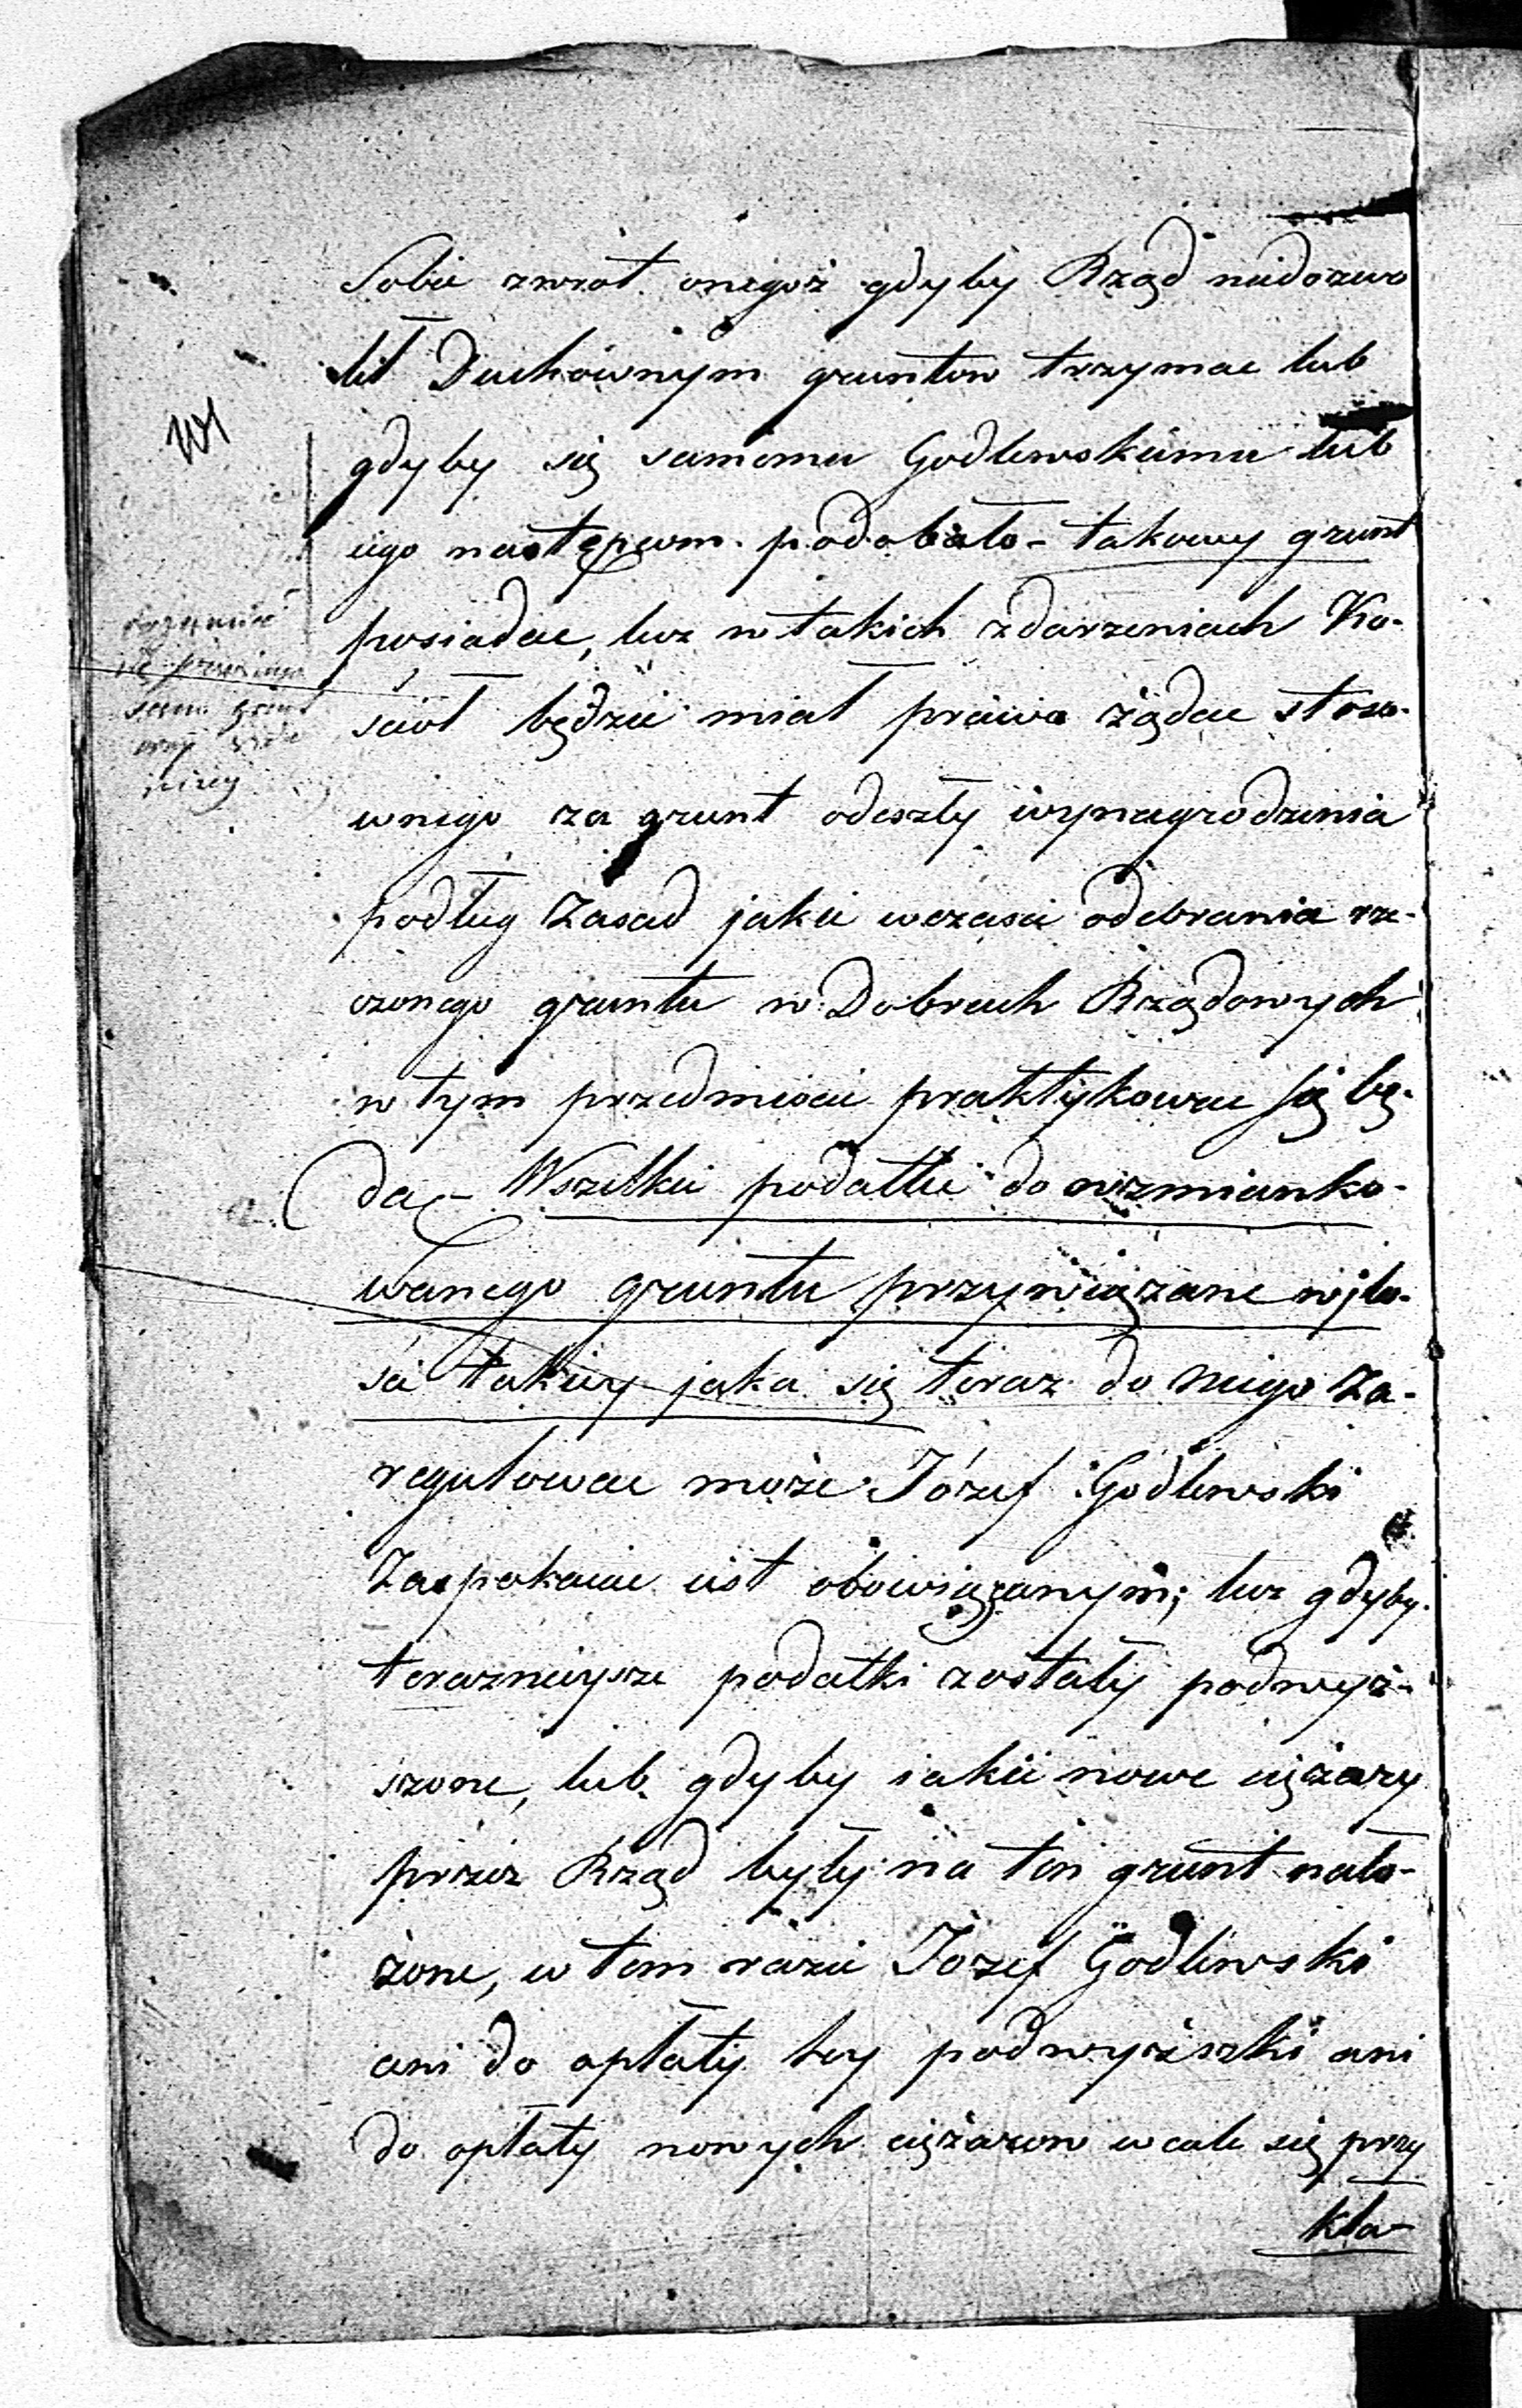 Sobie zwrot onegoż gdyby Rząd niedozwo
lił Duchownym gruntow trzymac lub
gdyby się samemu Godlewskiemu lub
iego następcom podobało takowy grunt
posiadac, lecz w takich zdarzeniach Ko-
sciół będzie miał prawo żądac stoso-
wnego za grunt odeszły wynagrodzenia
podług zasad jakie wczasie odebrania rze-
czonego gruntu w Dobrach Rządowych
w tym przedmiocie praktykowac się bę-
dą – Wszelkie podatki do wzmianko-
wanego gruntu przywiązane w ilo-
sci takiey jaka się teraz do niego za-
regulowac może Józef Godlewski
Zaspakaiac iest obowiązanym; lecz gdyby
teraznieysze podatki zostały podwyż-
szone, lub gdyby iakie nowe ciężary
przez Rząd były na ten grunt nało-
żone, w tem razie Jozef Godlewski
ani do opłaty tey podwyższki ani
do opłaty nowych ciężarow wcale się przy
kła-